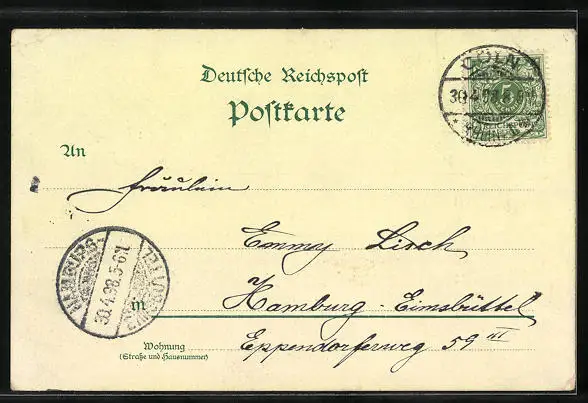 Deutsche Reichspost
Postkarte
CÖLN
30.4.98.5-6
5
An
Fräulein
Emmy Lisch
HAMBURG
30.4.98.5-6N.
in
Hamburg-Eimsbüttel
Eppendorferweg 59 III
Wohnung
(Straße und Hausnummer)